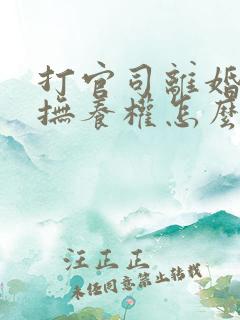 打官司離婚
撫養權怎麼
汪正正
未經同意禁止轉載